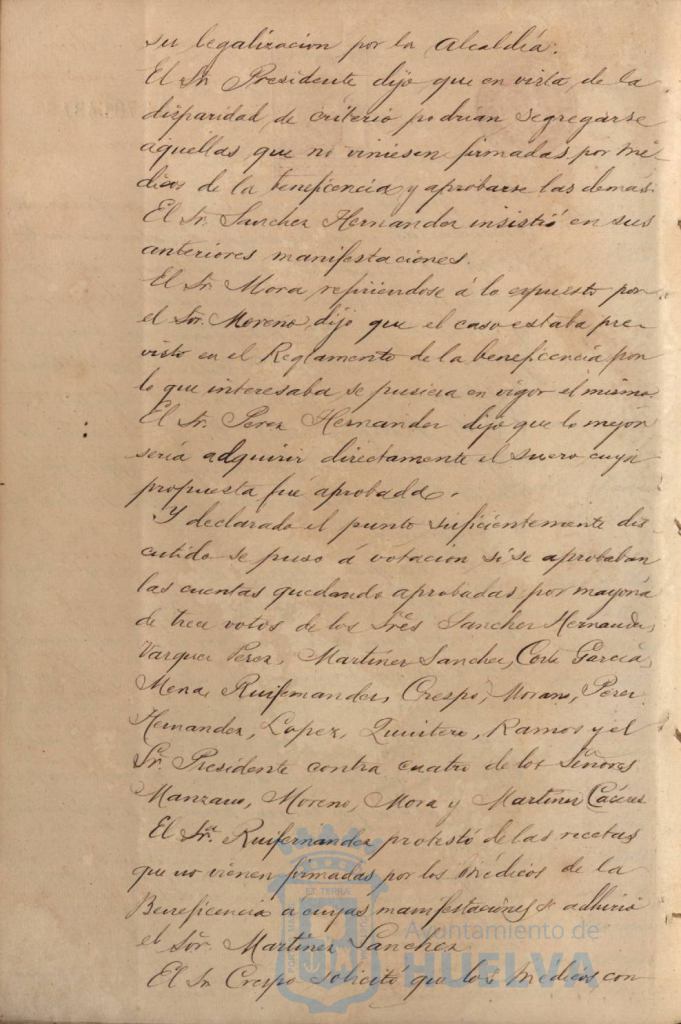 su legalizacion por la Alcaldía.
El Sr. Presidente dijo que en vista de la
disparidad de criterio podrian segregarse
aquellas que no viniesen firmadas por mé-
dicos de la beneficencia y aprobarse las demas.
El Sr. Sanchez Hernandez insistió en sus
anteriores manifestaciones.
El Sr. Mora refiriendose á lo expuesto por
el Sor. Moreno, dijo que el caso estaba pre-
visto en el Reglamento de la beneficencia por
lo que interesaba se pusiera en vigor el mismo.
El Sr. Perez Hernandez dijo que lo mejor
seria adquirir directamente el suero cuya
propuesta fué aprobada.
Y declarado el punto suficientemente dis-
cutido se puso á votación si se aprobaban
las cuentas quedando aprobadas por mayoria
de trece votos de los Sres Sanchez Hernandez,
Vazquez Perez, Martinez Sanchez, Corte Garcia,
Mena, Ruifernandez, Crespo, Morano, Perez
Hernandez, Lopez, Quintero, Ramos y el
Sr. Presidente contra cuatro de los Señores
Manzano, Moreno, Mora y Martinez Cáceres
El Sr. Ruifernandez protestó de las recetas
que no vienen firmadas por los Médicos de la
Beneficencia a cuyas manifestaciones se adhirió
el Sor. Martinez Sanchez
El Sr. Crespo solicitó que los Medicos, con
Ayuntamiento de
HUELVA